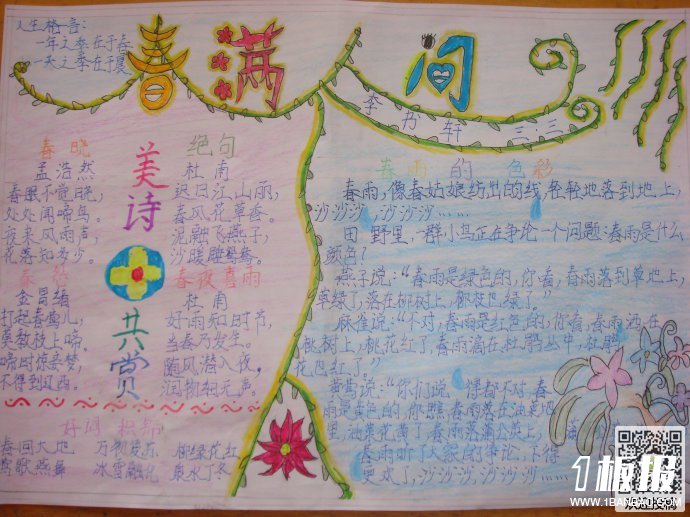 人生格言:
一年之季在于春
一天之季在于晨
春满 间
李乃轩 三:三
春晓
孟浩然
春眠不觉晓,
处处闻啼鸟。
夜来风雨声,
花落知多少。
绝句
杜甫
迟日江山丽,
春风花草香。
泥融飞燕子,
沙暖睡鸳鸯。
美诗共赏
春
金昌绪
打起黄莺儿,
莫教枝上啼。
啼时惊妾梦,
不得到辽西。
春夜喜雨
杜甫
好雨知时节,
当春乃发生。
随风潜入夜,
润物细无声。
好词积
春回大地 万物复苏 柳绿花红
莺歌燕舞 冰雪融化 泉水丁冬
春雨的色彩
春雨,像春姑娘纺出的线,轻轻地落到地上,
沙沙沙,沙沙沙……
田野里,一群小鸟正在争论一个问题:春雨是什么
颜色?
燕子说:“春雨是绿色的,你看,春雨落到草地上,
草绿了,落在柳树上,柳枝也绿了。”
麻雀说:“不对,春雨是红色的,你看,春雨洒在
桃树上,桃花红了,春雨滴在杜鹃丛中,杜鹃
花也红了。”
黄莺说:“你们说得都不对,春
雨是黄色的,你照,春雨落在油菜地
里,油菜花黄了,春雨落蒲公英上,
春雨听了大家的争论,下得
更欢了,沙沙沙,沙沙沙……
1板报
WWW.1BANBAO.COM
欢迎投稿